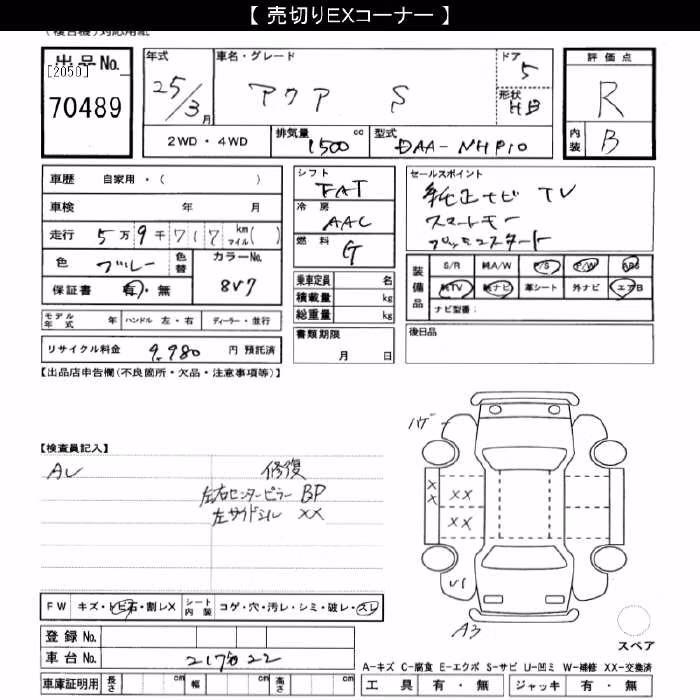 【 売切りEXコーナー 】
(複合機)対応用紙
出品No.
[2050]
70489
年式
25/3月
車名・グレード
アクア S
ドア
5
形状
HB
評価点
R
内装 B
2WD・4WD
排気量 1500 cc
型式 DAA-NHP10
車歴 自家用・( )
車検 年 月
走行 5万9千717 km マイル( )
色 ブルー 色替 カラーNo. 8V7
保証書 有・無
モデル年式 年 ハンドル 左・右 ディーラー・並行
リサイクル料金 9,980 円 預託済
シフト
FAT
冷房
AAC
燃料
G
乗車定員 名
積載量 kg
総重量 kg
書類期限
月 日
セールスポイント
純正ナビ TV
スマートキー
プッシュスタート
装備品
S/R 純A/W P/S P/W ABS
純TV 純ナビ 革シート 外ナビ エアB
ナビ型番:
後日品
【出品店申告欄(不良箇所・欠品・注意事項等)】
【検査員記入】
AL
修復
左右センターピラー BP
左サイドシル XX
FW キズ・トビ石・割レX シート内装 コゲ・穴・汚レ・シミ・破レ・スレ
登録No.
車台No. 217522
車庫証明用 長さ cm 幅 cm 高さ cm
ハゲ
XX
XX
XX
U1
A3
スペア
A-キズ C-腐食 E-エクボ S-サビ U-凹ミ W-補修 XX-交換済
工具 有・無 ジャッキ 有・無